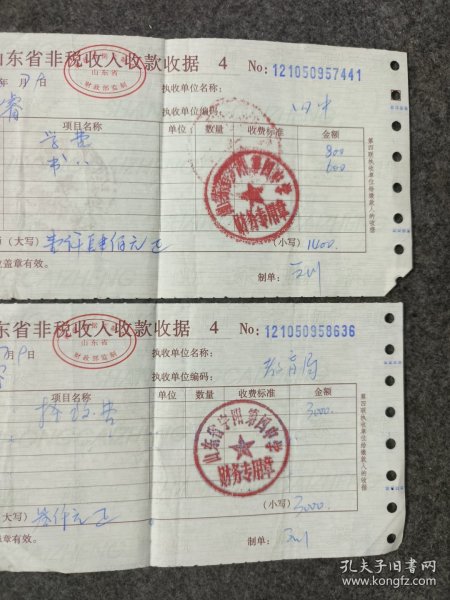 山东省非税收入收款收据 4 No: 121050957441
年 月 9日 执收单位名称:
山东省
财政部监制
执收单位编码: 四中
项目名称 单位 数量 收费标准 金额
学费 800
书 600
财务专用章
(大写) 壹仟肆佰元正 (小写) 1400.
盖章有效。 制单:
第四联执收单位给缴款人的收据
东省非税收入收款收据 4 No: 121050958636
月9日 执收单位名称:
山东省
财政部监制
执收单位编码: 教育局
项目名称 单位 数量 收费标准 金额
择校费 3000.
山东省宁阳第四中学
财务专用章
大写) 叁仟元正 (小写) 3000
盖章有效。 制单:
第四联执收单位给缴款人的收据
孔夫子旧书网
www.kongfz.com